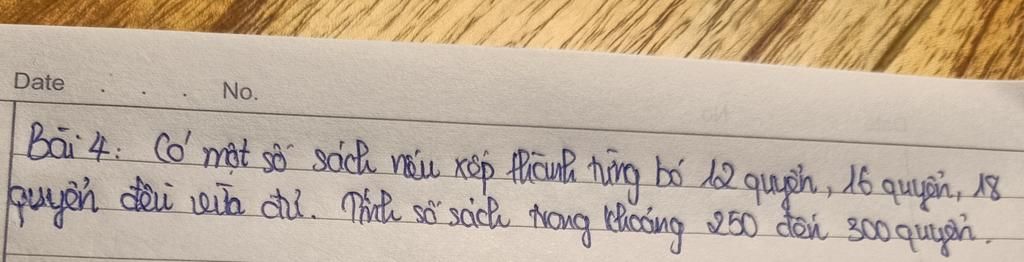 Date . . . No.
Bài 4: Có một số sách nếu xếp thành từng bó 12 quyển, 16 quyển, 18
quyển đều vừa đủ. Tính số sách trong khoảng 250 đến 300 quyển.